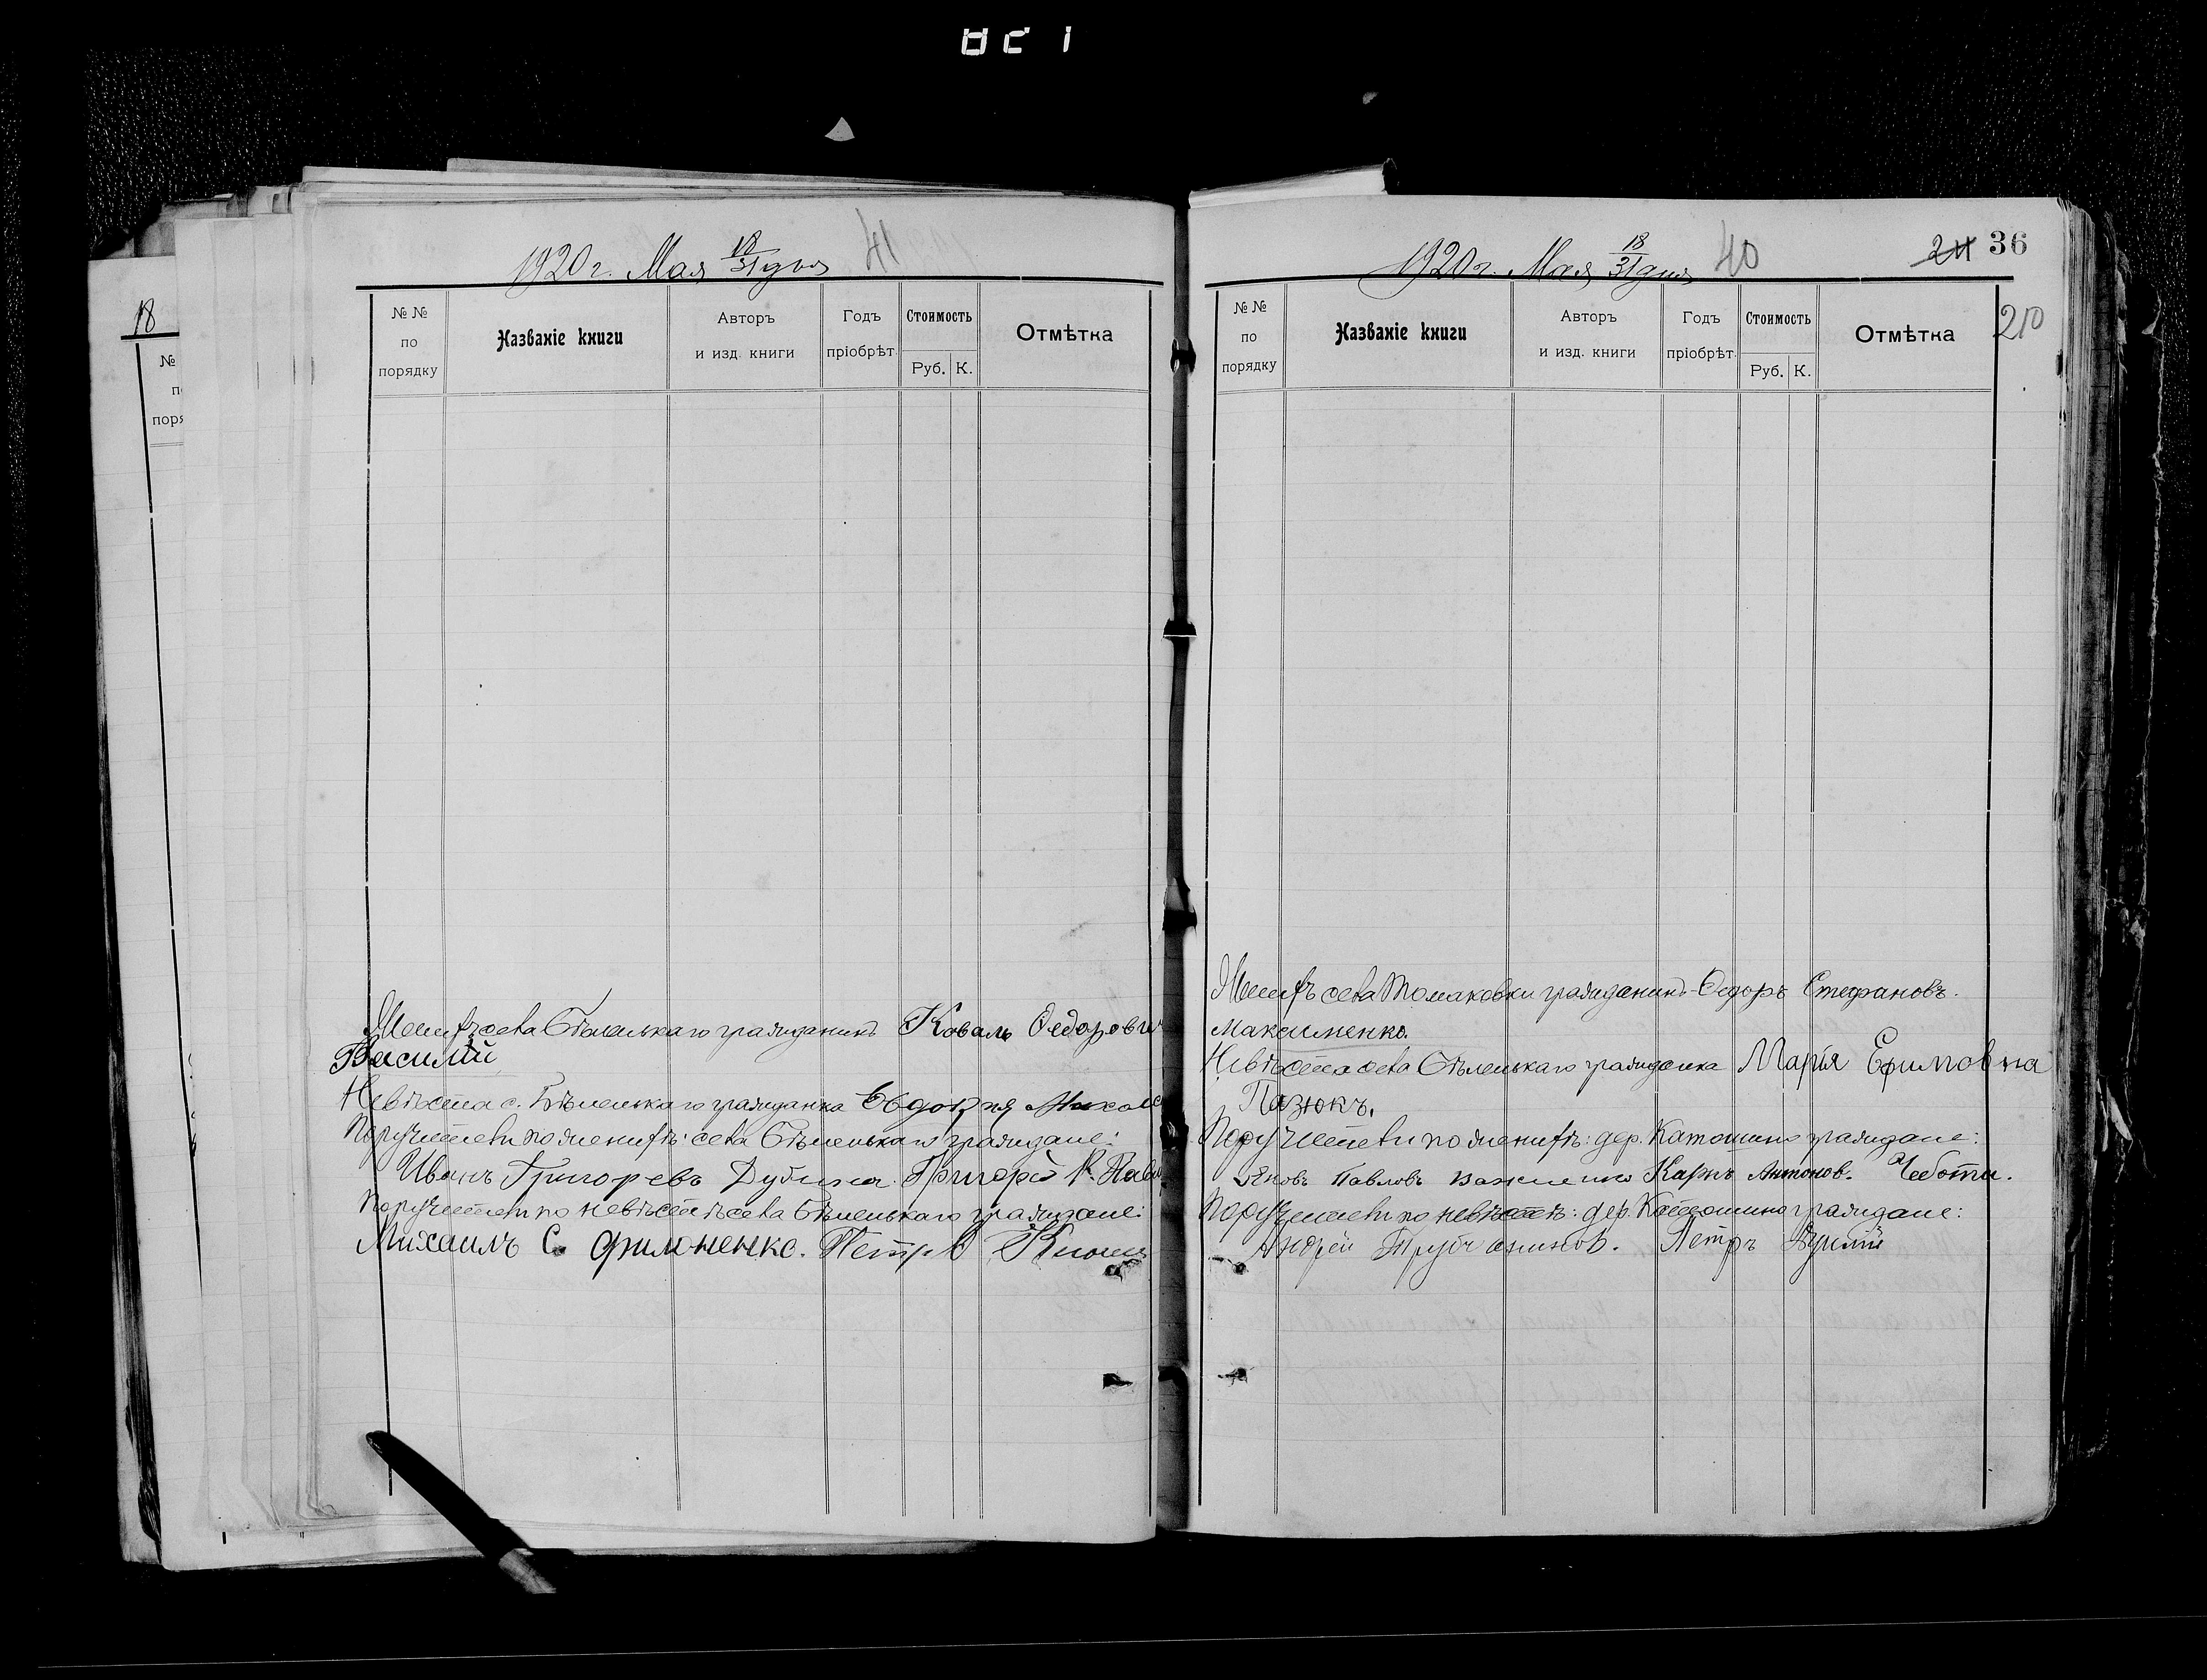 1920 г. Мая 18/31 дня 41
№ № по порядку
Названіе книги
Авторъ и изд. книги
Годъ пріобрѣт.
Стоимость
Руб. К.
Отмѣтка
Женихъ села Бѣленькаго гражданинъ Коваль Федорович
Василій
Невѣста с. Бѣленькаго гражданка Евдокия
Поручители по женихѣ: села Бѣленькаго граждане:
Иванъ Григорьевъ Дубина. Григорій
Поручители по невѣстѣ села Бѣленькаго граждане:
Михаилъ С. Филоненко. Петръ
18
№
по
1920 г. Мая 18/31 дня 40
24 36
210
№ № по порядку
Названіе книги
Авторъ и изд. книги
Годъ пріобрѣт.
Стоимость
Руб. К.
Отмѣтка
Женихъ села Томаковки гражданинъ Федоръ Стефановъ.
Максименко.
Невѣста села Бѣленькаго гражданка Марія Ефимовна
Пазюкъ.
Поручители по женихѣ: дер. граждане:
Яковъ Павловъ Карпъ Антонов.
Поручители по невѣстѣ: дер. граждане:
Андрей Петръ